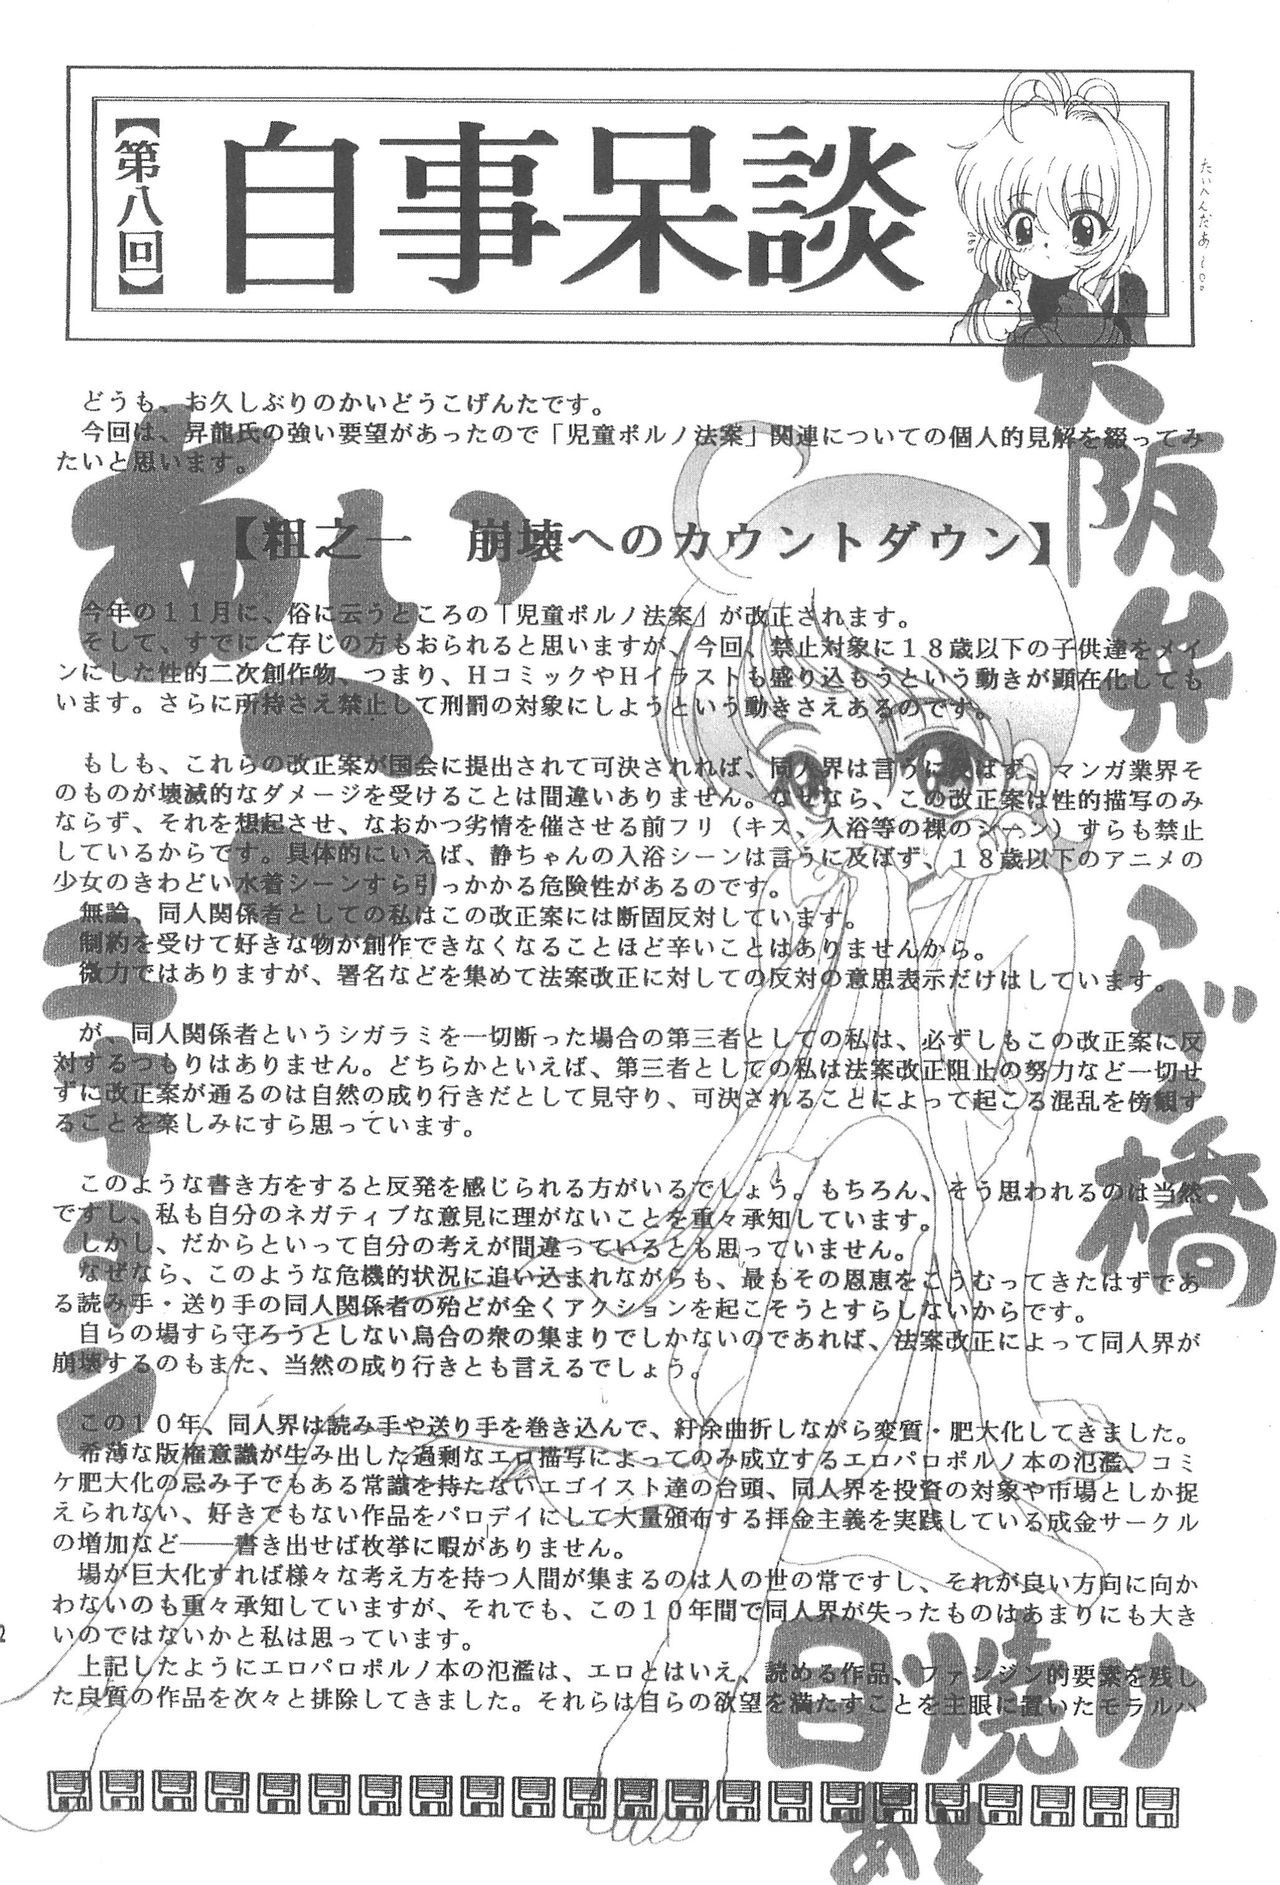 【第八回】
自事呆談
たいへんだあ~。。
どうも、お久しぶりのかいどうこげんたです。
今回は、昇龍氏の強い要望があったので「児童ポルノ法案」関連についての個人的見解を綴ってみ
たいと思います。
【粗之一　崩壊へのカウントダウン】
今年の11月に、俗に云うところの「児童ポルノ法案」が改正されます。
そして、すでにご存じの方もおられると思いますが、今回、禁止対象に18歳以下の子供達をメイ
ンにした性的二次創作物、つまり、HコミックやHイラストも盛り込もうという動きが顕在化しても
います。さらに所持さえ禁止して刑罰の対象にしようという動きさえあるのです。
もしも、これらの改正案が国会に提出されて可決されれば、同人界は言うに及ばず、マンガ業界そ
のものが壊滅的なダメージを受けることは間違いありません。なぜなら、この改正案は性的描写のみ
ならず、それを想起させ、なおかつ劣情を催させる前フリ（キス、入浴等の裸のシーン）すらも禁止
しているからです。具体的にいえば、静ちゃんの入浴シーンは言うに及ばず、18歳以下のアニメの
少女のきわどい水着シーンすら引っかかる危険性があるのです。
無論、同人関係者としての私はこの改正案には断固反対しています。
制約を受けて好きな物が創作できなくなることほど辛いことはありませんから。
微力ではありますが、署名などを集めて法案改正に対しての反対の意思表示だけはしています。
が、同人関係者というシガラミを一切断った場合の第三者としての私は、必ずしもこの改正案に反
対するつもりはありません。どちらかといえば、第三者としての私は法案改正阻止の努力など一切せ
ずに改正案が通るのは自然の成り行きだとして見守り、可決されることによって起こる混乱を傍観す
ることを楽しみにすら思っています。
このような書き方をすると反発を感じられる方がいるでしょう。もちろん、そう思われるのは当然
ですし、私も自分のネガティブな意見に理がないことを重々承知しています。
しかし、だからといって自分の考えが間違っているとも思っていません。
なぜなら、このような危機的状況に追い込まれながらも、最もその恩恵をこうむってきたはずであ
る読み手・送り手の同人関係者の殆どが全くアクションを起こそうとすらしないからです。
自らの場すら守ろうとしない烏合の衆の集まりでしかないのであれば、法案改正によって同人界が
崩壊するのもまた、当然の成り行きとも言えるでしょう。
この10年、同人界は読み手や送り手を巻き込んで、紆余曲折しながら変質・肥大化してきました。
希薄な版権意識が生み出した過剰なエロ描写によってのみ成立するエロパロポルノ本の氾濫、コミ
ケ肥大化の忌み子でもある常識を持たないエゴイスト達の台頭、同人界を投資の対象や市場としか捉
えられない、好きでもない作品をパロデイにして大量頒布する拝金主義を実践している成金サークル
の増加など――書き出せば枚挙に暇がありません。
場が巨大化すれば様々な考え方を持つ人間が集まるのは人の世の常ですし、それが良い方向に向か
わないのも重々承知していますが、それでも、この10年間で同人界が失ったものはあまりにも大き
いのではないかと私は思っています。
上記したようにエロパロポルノ本の氾濫は、エロとはいえ、読める作品、ファンジン的要素を残し
た良質の作品を次々と排除してきました。それらは自らの欲望を満たすことを主眼に置いたモラルハ
大阪弁
橋
日焼け
あと
2